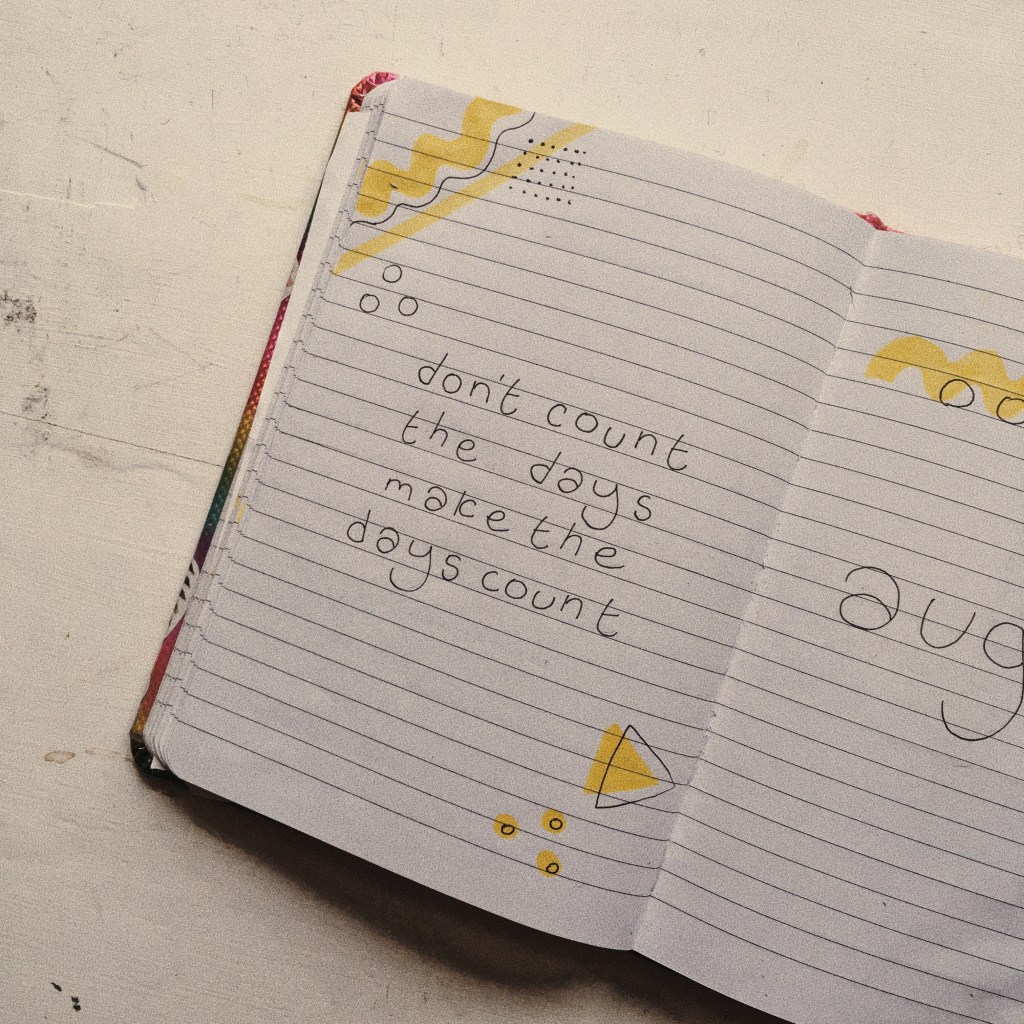 don't count
the days
make the
days count
aug